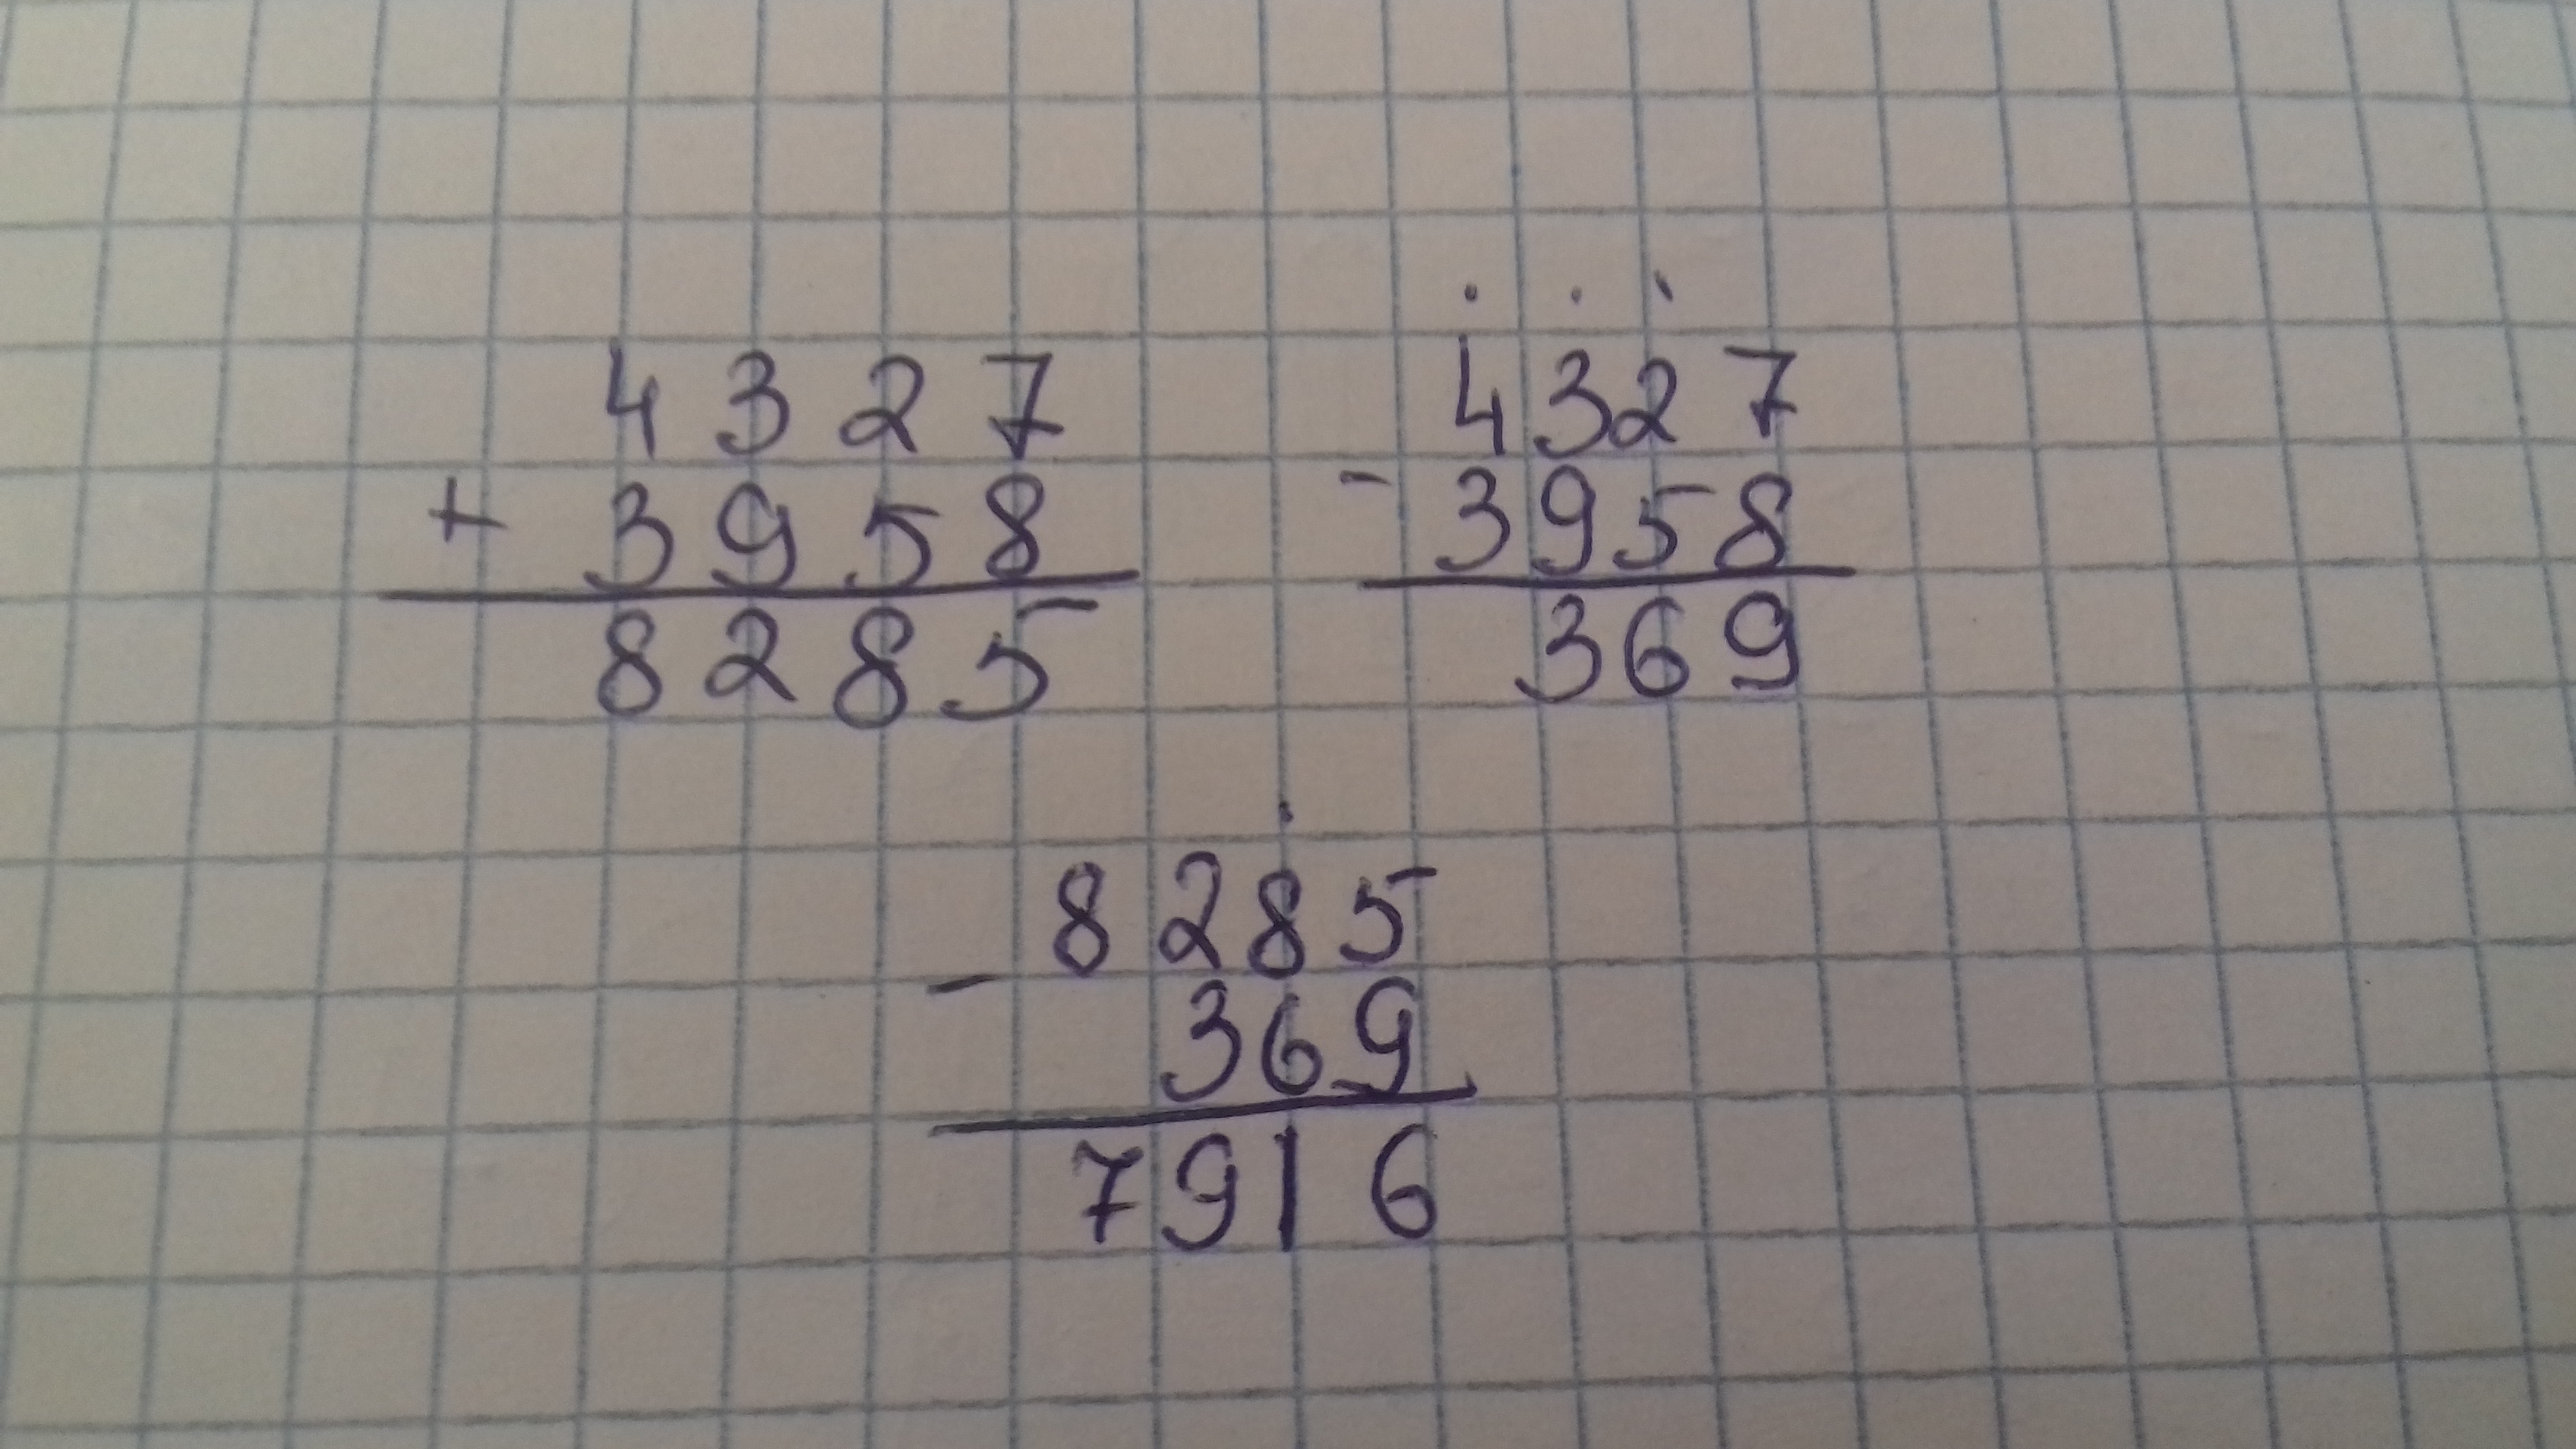 4327
+ 3958
8285
4327
- 3958
369
8285
- 369
7916